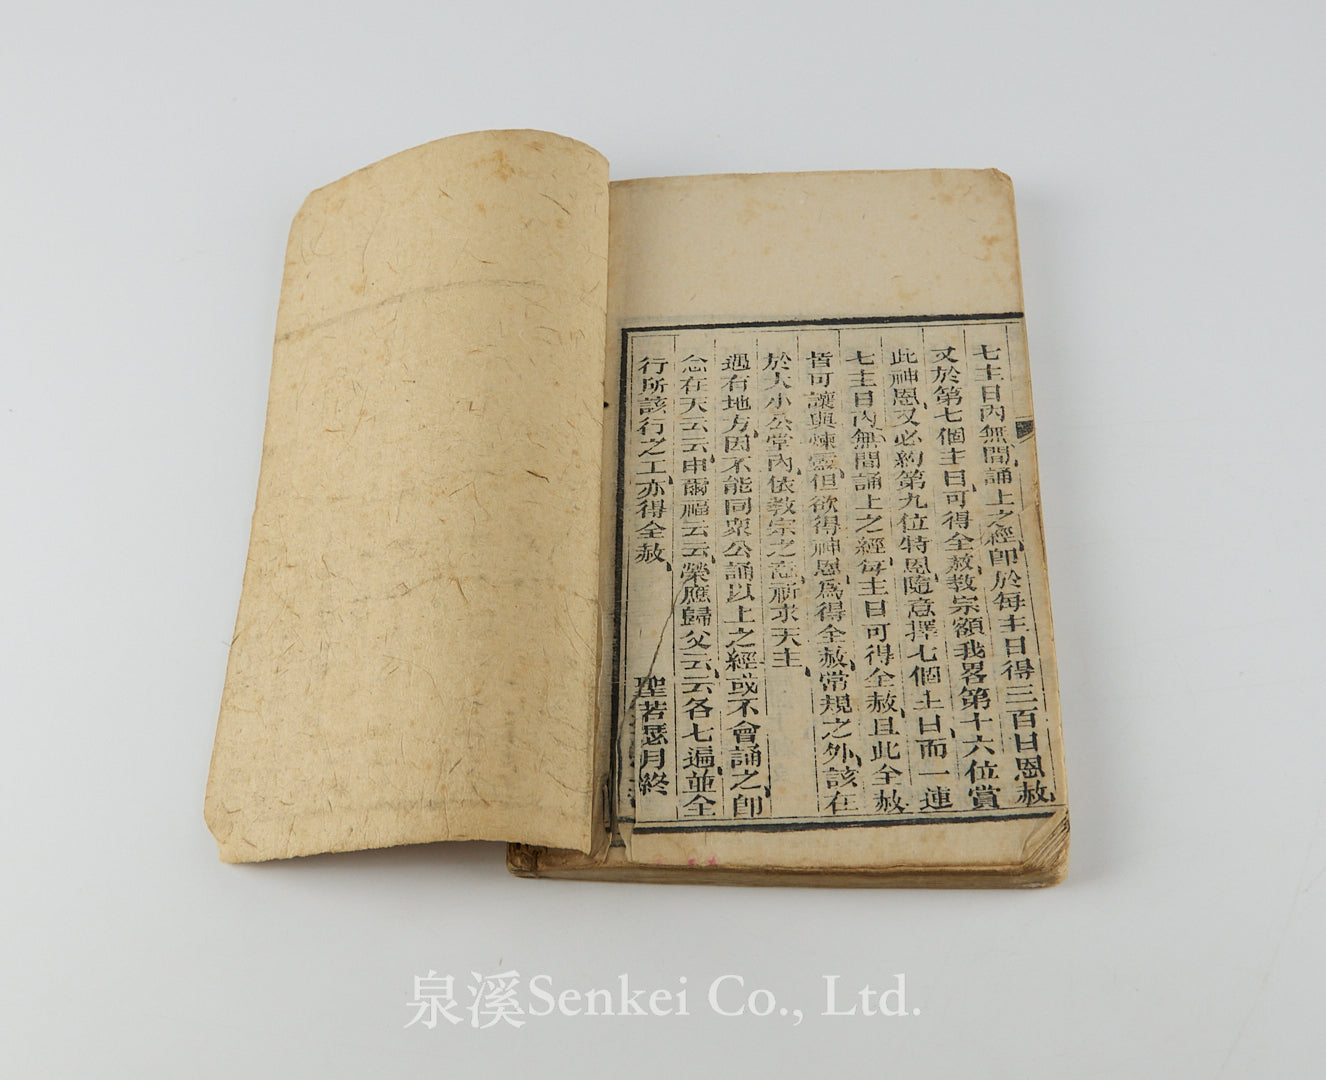 七主日內無間誦上之經卽於每主日得三百日恩赦
又於第七個主日可得全赦教宗額我畧第十六位賞
此神恩又必約第九位特恩隨意擇七個主日而一連
七主日內無間誦上之經每主日可得全赦且此全赦
皆可讓與煉靈但欲得神恩爲得全赦常規之外該在
於大小公堂內依教宗之意祈求天主
遇有地方因不能同衆公誦以上之經或不會誦之卽
念在天云云申爾福云云榮應歸父云云各七遍並全
行所該行之工亦得全赦
聖若瑟月終
泉溪Senkei Co., Ltd.